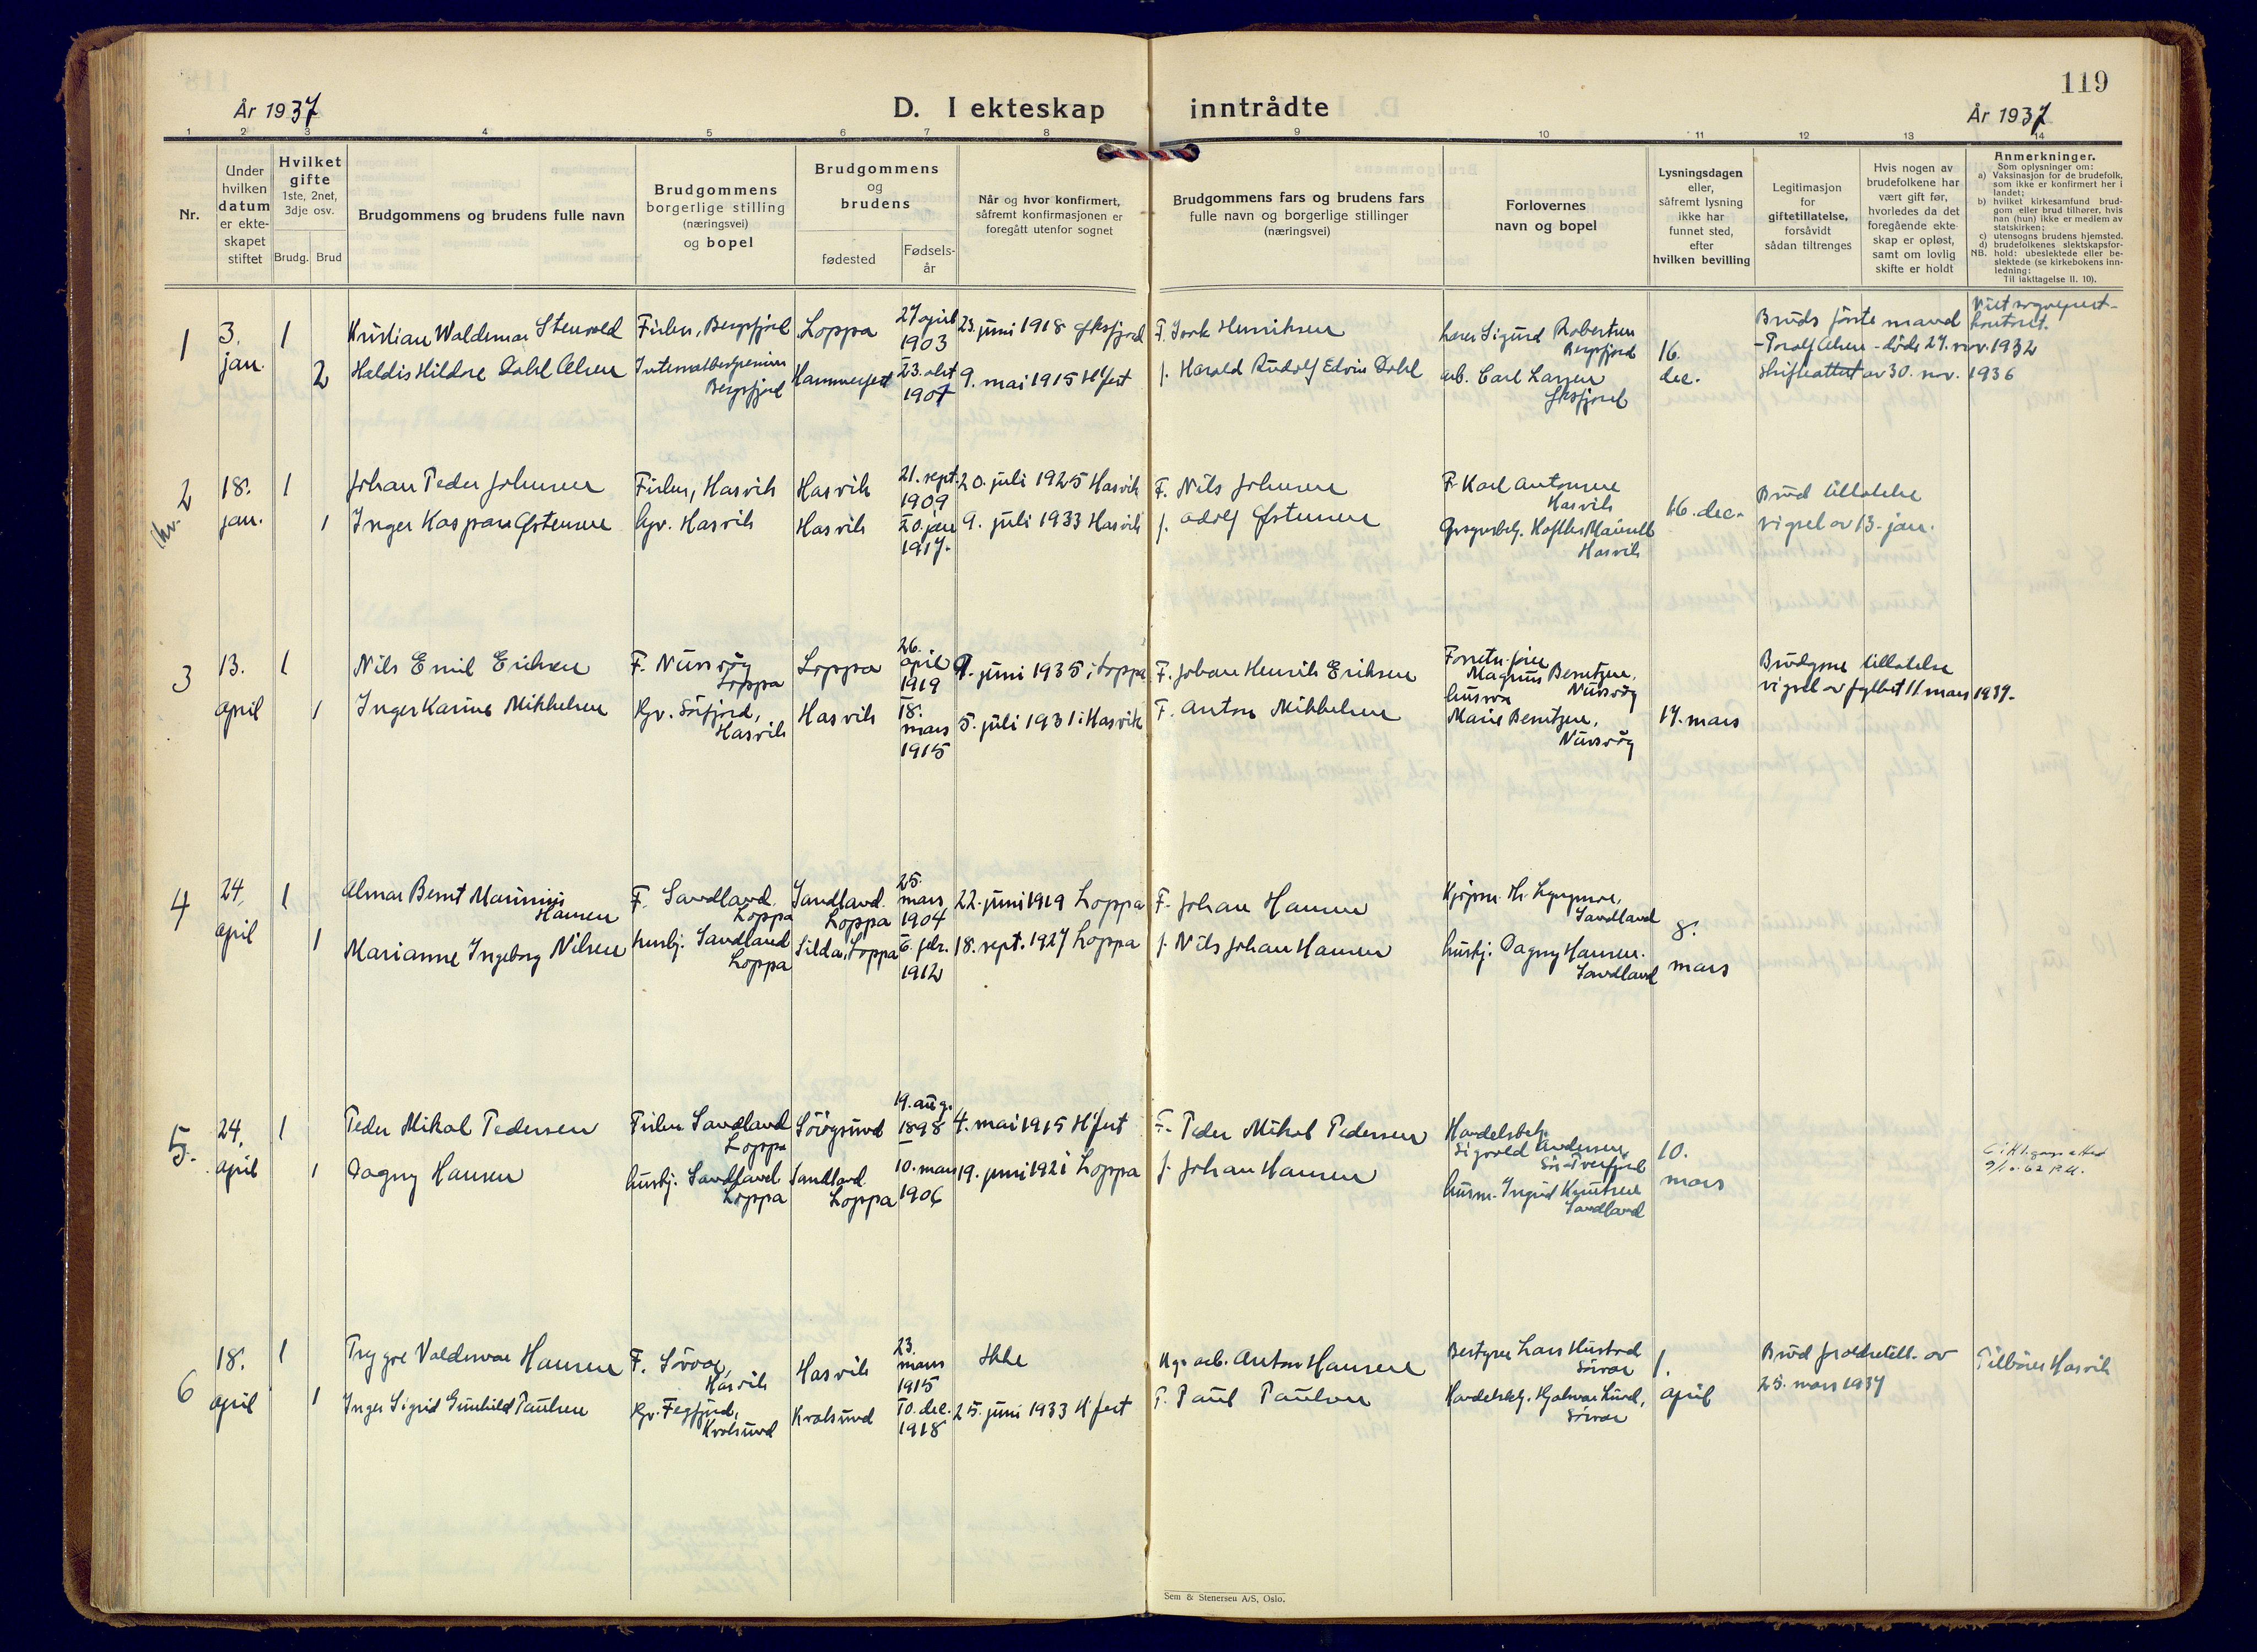 119
År 1937
D. I ekteskap inntrådte
År 1937
1 2 3 4 5 6 7 8 9 10 11 12 13 14
Nr.
Under
hvilken
datum
er ekte-
skapet
stiftet
Hvilket
gifte
1ste, 2net,
3dje osv.
Brudg. Brud
Brudgommens og brudens fulle navn
Brudgommens
borgerlige stilling
(næringsvei)
og bopel
Brudgommens
og
brudens
fødested
Fødsels-
år
Når og hvor konfirmert,
såfremt konfirmasjonen er
foregått utenfor sognet
Brudgommens fars og brudens fars
fulle navn og borgerlige stillinger
(næringsvei)
Forlovernes
navn og bopel
Lysningsdagen
eller,
såfremt lysning
ikke har
funnet sted,
efter
hvilken bevilling
Legitimasjon
for
giftetillatelse,
forsåvidt
sådan tiltrenges
Hvis nogen av
brudefolkene har
vært gift før,
hvorledes da det
foregående ekte-
skap er opløst,
samt om lovlig
skifte er holdt
Anmerkninger.
Som oplysninger om:
a) Vaksinasjon for de brudefolk,
som ikke er konfirmert her i
landet;
b) hvilket kirkesamfund brud-
gom eller brud tilhører, hvis
han (hun) ikke er medlem av
statskirken;
c) utensogns brudens hjemsted.
d) brudefolkenes slektskapsfor-
hold: ubeslektede eller be-
slektede (se kirkebokens inn-
ledning:
NB.
Til iakttagelse II. 10).
1
3.
jan.
1
Kristian Waldemar Stenvold
Fisker, Bergsfjord
Loppa
27 april
1903
23. juni 1918 Øksfjord
F. Isak Henriksen
Lærer Sigurd Robertsen
Bergsfjord
2
Haldis Hildre Dahl Olsen
Bergsfjord
Hammerfest
23. okt
1901
9. mai 1915 H'fest
f. Harald Rudolf Edvin Dahl
arb. Carl Larsen
Øksfjord
16.
dec.
Bruds første mand
- Toralf Olsen - døde 27. nov. 1932
Skifteattest av 30. nov. 1936
2
18.
jan.
1
Johan Peder Johnsen
Fisker, Hasvik
Hasvik
21. sept.
1909
20. juli 1925 Hasvik
F. Nils Johnsen
F. Karl Antonsen
Hasvik
1
Inger Kaspara Østensen
Gv. Hasvik
Hasvik
20. jan
1917.
9. juli 1933 Hasvik
f. Adolf Østensen
Hasvik
16. dec.
Brud tillatelse
vigsel av 13. jan.
3
13.
april
1
Nils Emil Eriksen
F. Nuvsvåg
Loppa
Loppa
26.
april
1919
9. juni 1935 i Loppa
F. Johan Henrik Eriksen
Magnus Berntzen,
Nuvsvåg
1
Inger Karine Mikkelsen
Gv. Sørfjord,
Hasvik
Hasvik
18.
mars
1915
5. juli 1931 i Hasvik
F. Anton Mikkelsen
husmor
Marie Berntzen,
Nuvsvåg
17. mars
Brudgom tillatelse
vigsel av fylket 11. mars 1937.
4
24.
april
1
Almar Bernt Marinius
Hansen
F. Sandland.
Loppa
Sandland.
Loppa
25.
mars
1904
22. juni 1919 Loppa
F. Johan Hansen
Sandland
1
Marianne Ingeborg Nilsen
hushj. Sandland
Loppa
Silda, Loppa
6. febr.
1912
18. sept. 1927 Loppa
f. Nils Johan Hansen
hushj. Dagny Hansen.
Sandland
8.
mars
5.
24.
april
1
Peder Mikal Pedersen
Fisker Sandland
Loppa
19. aug.
1898
4. mai 1915 H'fest
F. Peder Mikal Pedersen
Handelsbetj.
Sigvald Andersen
1
Dagny Hansen
hushj. Sandland
Loppa
Sandland.
Loppa
10. mars
1906
19. juni 1921 Loppa
f. Johan Hansen
husm. Ingrid Knutsen
Sandland
10.
mars
6
18.
april
1
Trygve Valdemar Hansen
F. Sørvær,
Hasvik
Hasvik
23.
mars
1915
Ikke
arb. Anton Hansen
Bestyrer Lars Hustad
Sørvær
1
Inger Sigrid Gunhild Paulsen
Gv. Fegfjord,
Kvalsund
Kvalsund
10. dec.
1918
25. juni 1933 H'fest
F. Paul Paulsen
Handelsbetj. Hjalmar Lund,
Sørvær
1.
april
Brud foreldretill. av
25. mars 1937
Tilhører Hasvik
Sem & Stenersen A/S, Oslo.